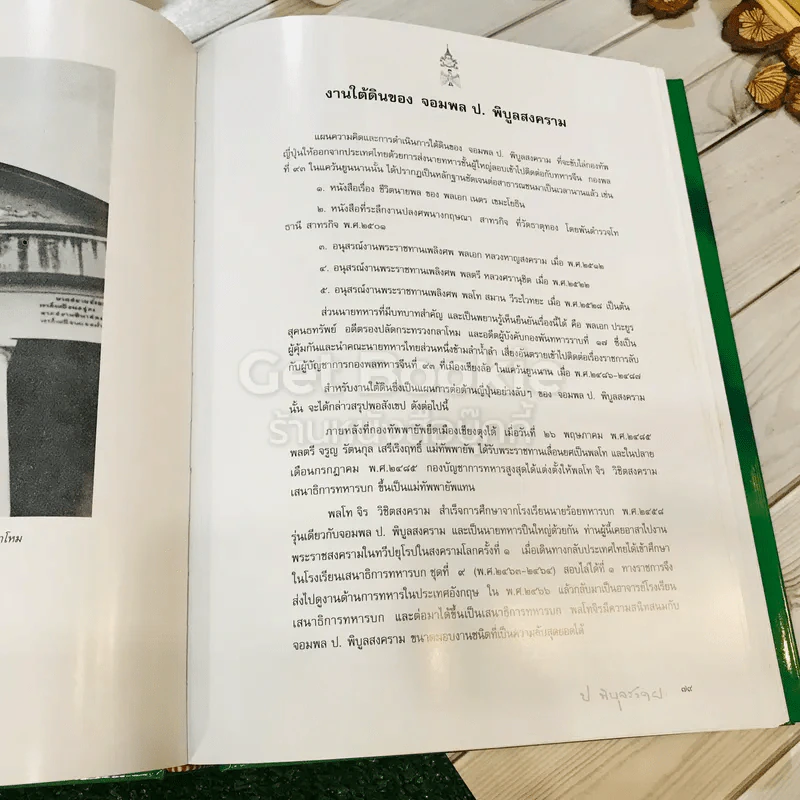 งานใต้ดินของ จอมพล ป. พิบูลสงคราม
แผนความคิดและการดำเนินการใต้ดินของ จอมพล ป. พิบูลสงคราม ที่จะขับไล่กองทัพ
ญี่ปุ่นให้ออกจากประเทศไทยด้วยการส่งนายทหารชั้นผู้ใหญ่สอบเข้าไปติดต่อกับทหารจีน กองพล
ที่ ๙๓ ในแคว้นยูนนานนั้น ได้ปรากฏเป็นหลักฐานชัดเจนต่อสาธารณชนมาเป็นเวลานานแล้ว เช่น
๑. หนังสือเรื่อง ชีวิตนายพล ของ พลเอก เนตร เขมะโยธิน
๒. หนังสือที่ระลึกงานปลงศพนางกฤษณา สาทรกิจ ที่วัดธาตุทอง โดยพันตำรวจโท
ธานี สาทรกิจ พ.ศ.๒๕๐๑
๓. อนุสรณ์งานพระราชทานเพลิงศพ พลเอก หลวงหาญสงคราม เมื่อ พ.ศ.๒๕๑๒
๔. อนุสรณ์งานพระราชทานเพลิงศพ พลตรี หลวงศรานุชิต เมื่อ พ.ศ.๒๕๒๒
๕. อนุสรณ์งานพระราชทานเพลิงศพ พลโท สมาน วีระไวทยะ เมื่อ พ.ศ.๒๕๒๘ เป็นต้น
ส่วนนายทหารที่มีบทบาทสำคัญ และเป็นพยานรู้เห็นยืนยันเรื่องนี้ได้ คือ พลเอก ประยูร
สุคนธทรัพย์ อดีตรองปลัดกระทรวงกลาโหม และอดีตผู้บังคับกองพันทหารราบที่ ๑๗ ซึ่งเป็น
ผู้คุ้มกันและนำคณะนายทหารไทยส่วนหนึ่งข้ามลำน้ำลำ เสี่ยงอันตรายเข้าไปติดต่อเรื่องราชการลับ
กับผู้บัญชาการกองพลทหารจีนที่ ๙๓ ที่เมืองเชียงล้อ ในแคว้นยูนนาน เมื่อ พ.ศ.๒๔๘๖-๒๔๘๗
สำหรับงานใต้ดินซึ่งเป็นแผนการต่อต้านญี่ปุ่นอย่างลับๆ ของ จอมพล ป. พิบูลสงคราม
นั้น จะได้กล่าวสรุปพอสังเขป ดังต่อไปนี้
ภายหลังที่กองทัพพายัพยึดเมืองเชียงตุงได้ เมื่อวันที่ ๒๖ พฤษภาคม พ.ศ.๒๔๘๕
พลตรี จรูญ รัตนกุล เสรีเริงฤทธิ์ แม่ทัพพายัพ ได้รับพระราชทานเลื่อนยศเป็นพลโท และในปลาย
เดือนกรกฎาคม พ.ศ.๒๔๘๕ กองบัญชาการทหารสูงสุดได้แต่งตั้งให้พลโท จิร วิชิตสงคราม
เสนาธิการทหารบก ขึ้นเป็นแม่ทัพพายัพแทน
พลโท จิร วิชิตสงคราม สำเร็จการศึกษาจากโรงเรียนนายร้อยทหารบก พ.ศ.๒๔๕๘
รุ่นเดียวกับจอมพล ป. พิบูลสงคราม และเป็นนายทหารปืนใหญ่ด้วยกัน ท่านผู้นี้เคยอาสาไปงาน
พระราชสงครามในทวีปยุโรปในสงครามโลกครั้งที่ ๑ เมื่อเดินทางกลับประเทศไทยได้เข้าศึกษา
ในโรงเรียนเสนาธิการทหารบก ชุดที่ ๙ (พ.ศ.๒๔๖๓-๒๔๖๔) สอบไล่ได้ที่ ๑ ทางราชการจึง
ส่งไปดูงานด้านการทหารในประเทศอังกฤษ ใน พ.ศ.๒๔๖๖ แล้วกลับมาเป็นอาจารย์โรงเรียน
เสนาธิการทหารบก และต่อมาได้ขึ้นเป็นเสนาธิการทหารบก พลโทจิรมีความสนิทสนมกับ
จอมพล ป. พิบูลสงคราม ขนาดมอบงานชนิดที่เป็นความลับสุดยอดได้
ป. พิบูลสงคราม
๗๙
าโหม
Get Book ie
ร้านหนังสือบุ๊กกี้